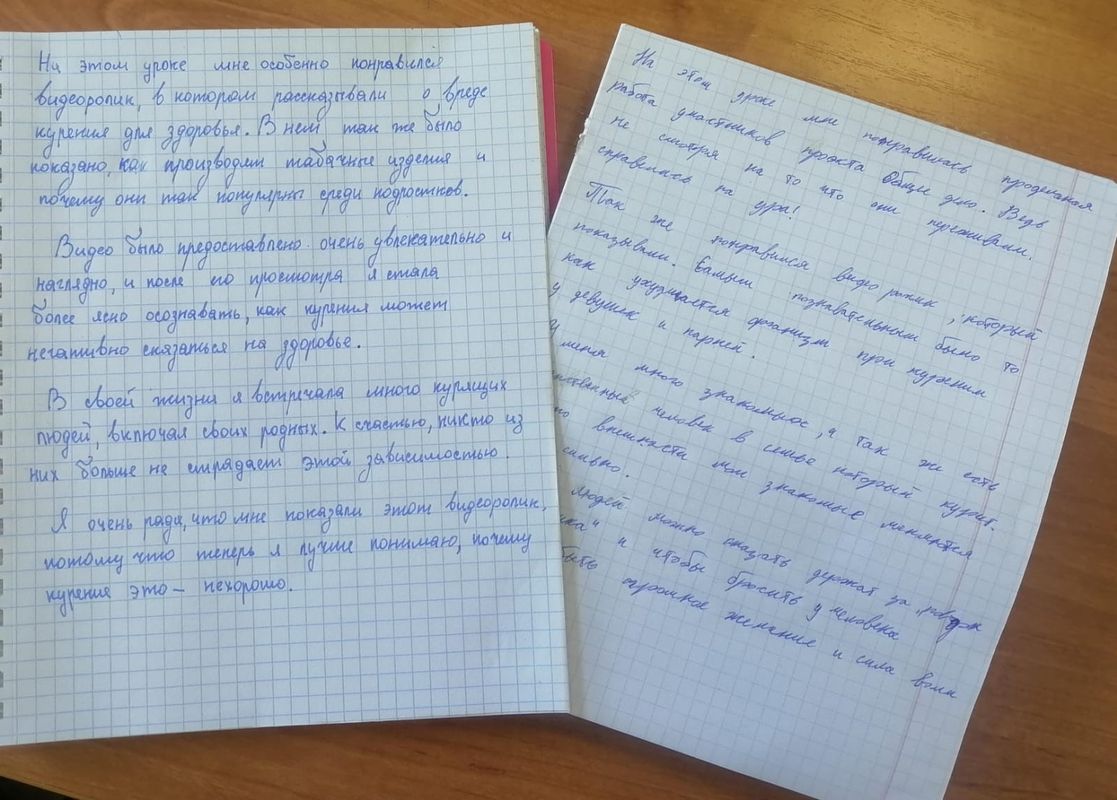 На этом уроке мне особенно понравился
видеоролик, в котором рассказывали о вреде
курения для здоровья. В нем так же было
показано, как производят табачные изделия и
почему они так популярны среди подростков.
Видео было предоставлено очень увлекательно и
наглядно, и после его просмотра я стала
более ясно осознавать, как курения может
негативно сказаться на здоровье.
В своей жизни я встречала много курящих
людей, включая своих родных. К счастью, никто из
них больше не страдает этой зависимостью.
Я очень рада, что мне показали этот видеоролик,
потому что теперь я лучше понимаю, почему
курение это — нехорошо.
На этом уроке мне понравилась проделаная
работа участников проэкта Общее дело. Ведь
не смотря на то что они переживали.
справились на ура!
Так же понравился видео ролик, который
показывали. Самым познавательным было то
как ухудшается организм при курении
у девушек и парней.
У меня много знакомых, а так же есть
человек в семье который курит.
внешности мои знакомые меняются
сильно.
людей можно сказать держат за
и чтобы бросить у человека
быть огромное желание и сила воли